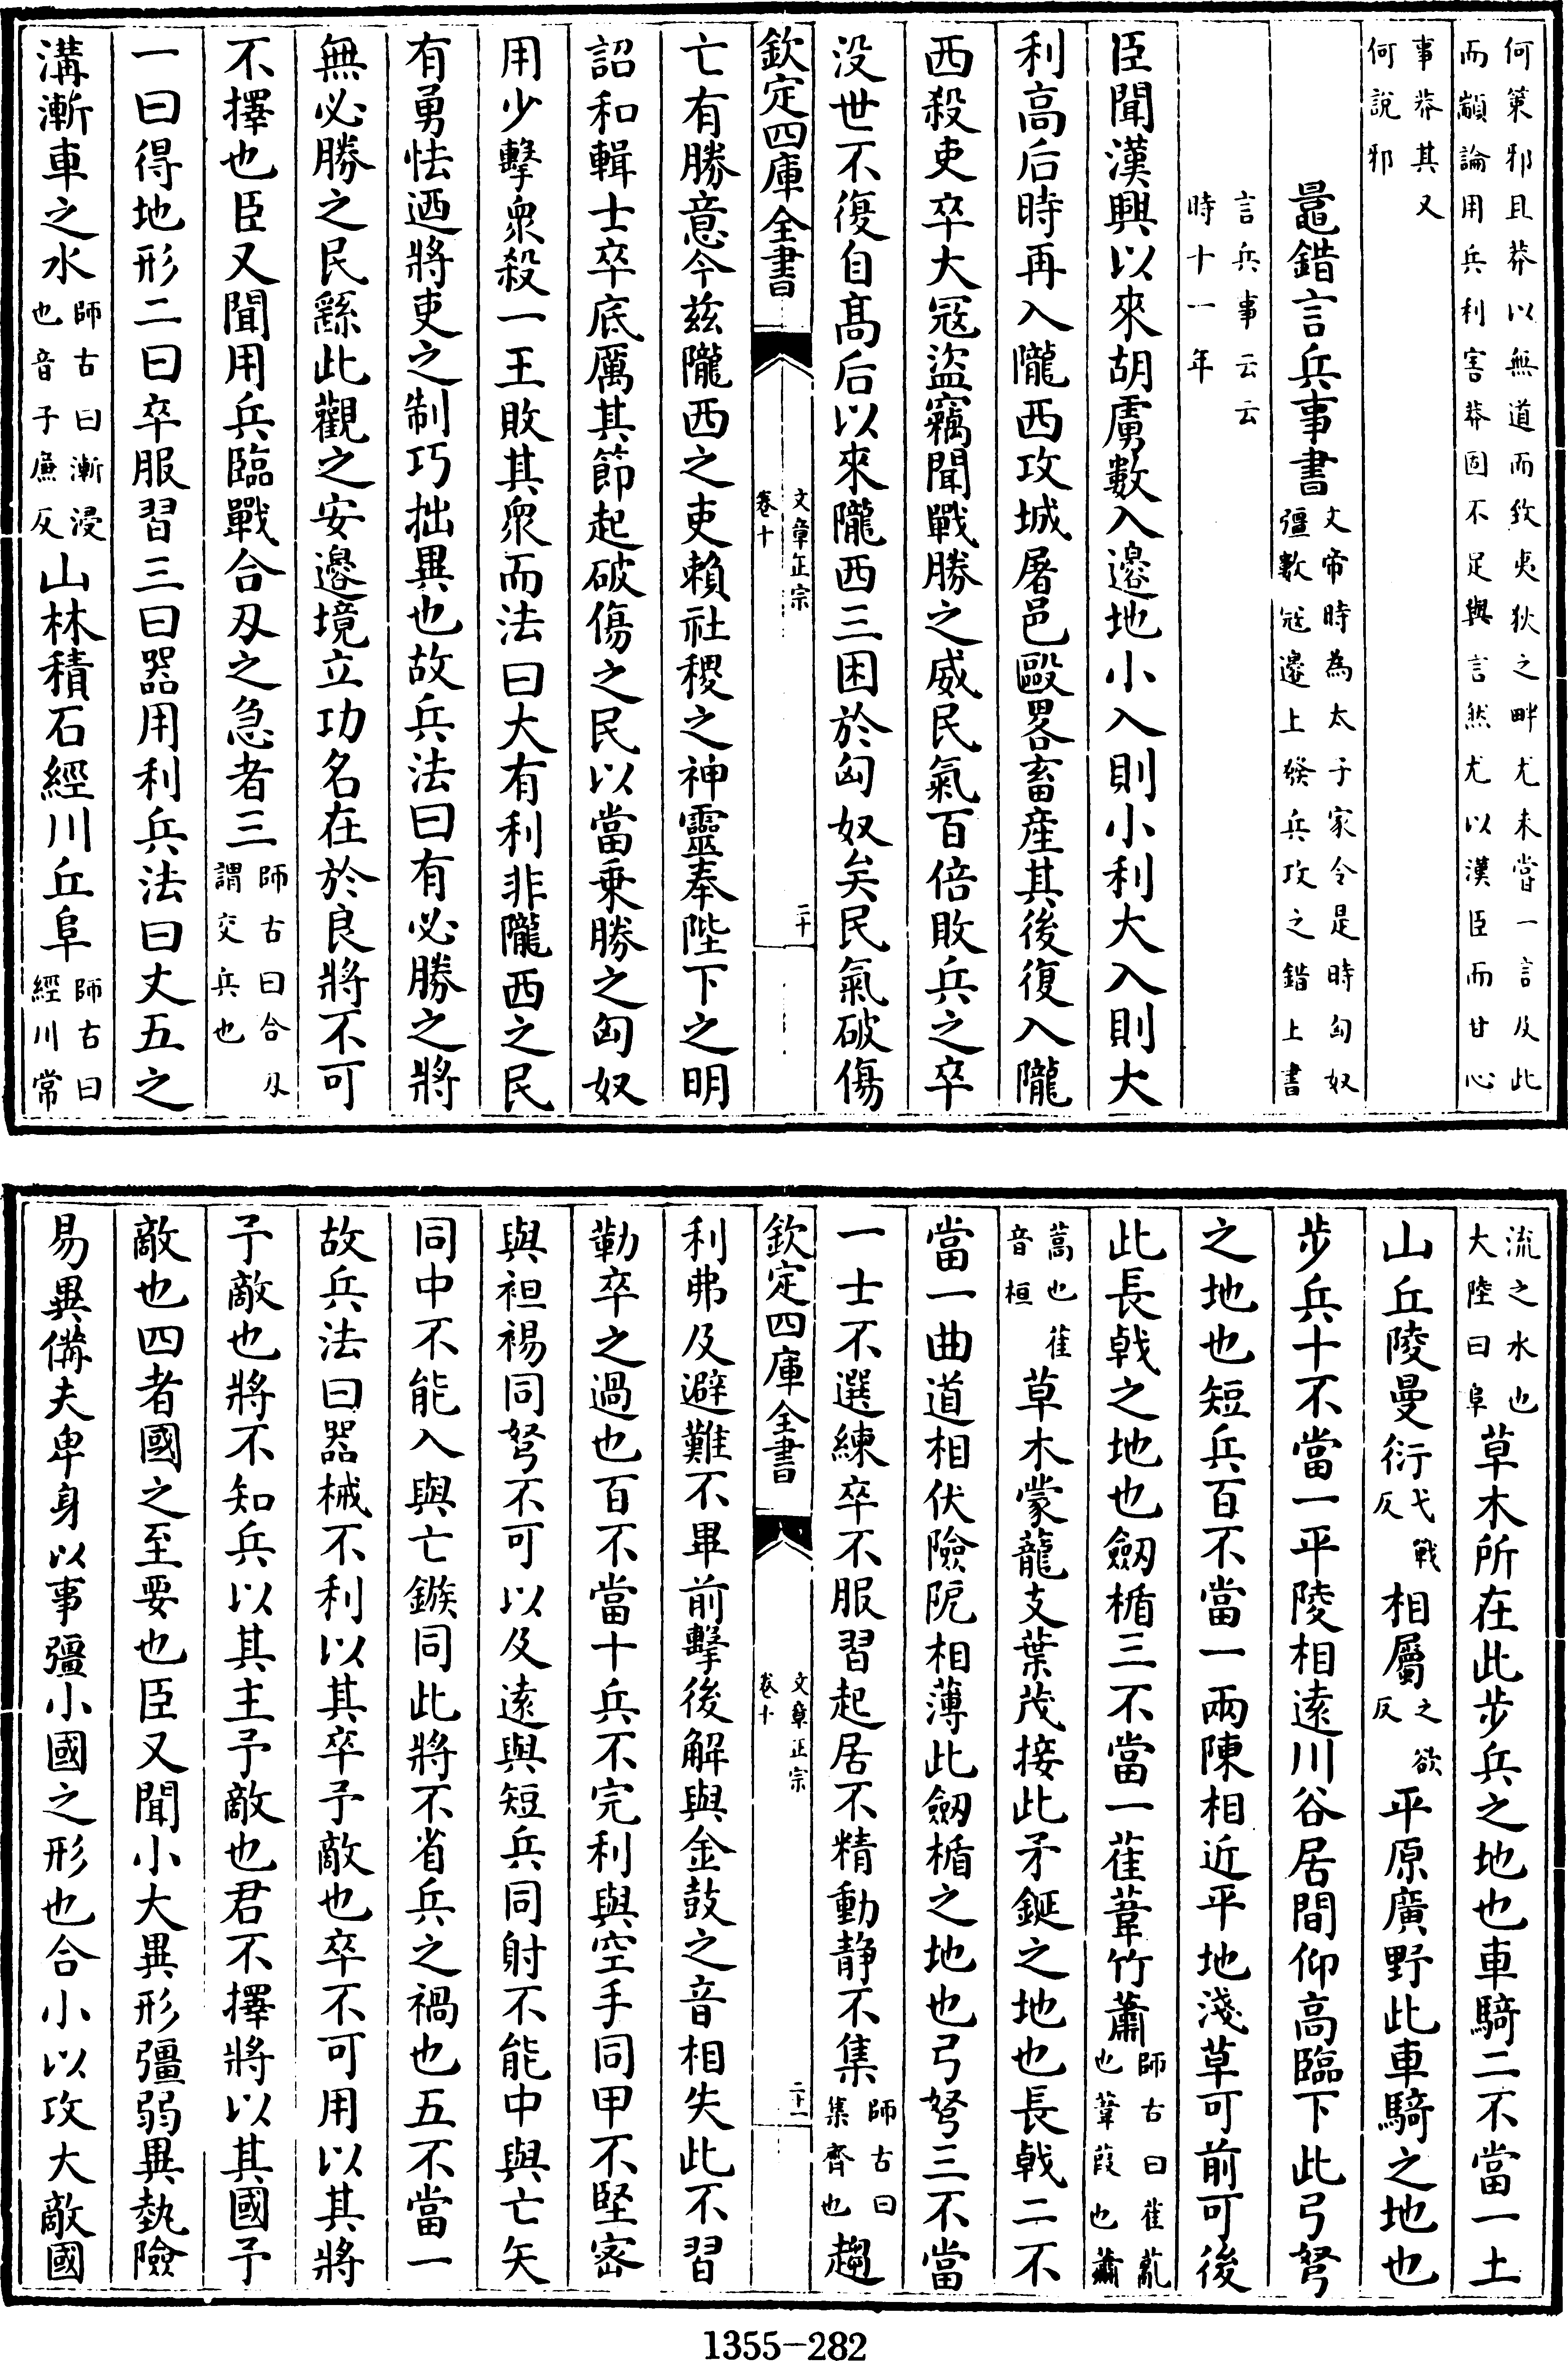 何策邪且莽以無道而致夷狄之畔尤未嘗一言及此
而顓論用兵利害莽固不足與言然尤以漢臣而甘心
事莽其又
何說邪
鼂錯言兵事書
文帝時為太子家令是時匈奴
彊數寇邊上發兵攻之錯上書
言兵事云云
時十一年
臣聞漢興以來胡虜數入邊地小入則小利大入則大
利高后時再入隴西攻城屠邑毆畧畜産其後復入隴
西殺吏卒大冦盜竊聞戰勝之威民氣百倍敗兵之卒
没世不復自高后以來隴西三困於匈奴矣民氣破傷
欽定四庫全書
文章正宗
卷十
二十
亡有勝意今兹隴西之吏賴社稷之神靈奉陛下之明
詔和輯士卒底厲其節起破傷之民以當乗勝之匈奴
用少擊衆殺一王敗其衆而法曰大有利非隴西之民
有勇怯迺將吏之制巧拙異也故兵法曰有必勝之將
無必勝之民繇此觀之安邊境立功名在於良將不可
不擇也臣又聞用兵臨戰合刃之急者三
師古曰合刃
謂交兵也
一曰得地形二曰卒服習三曰器用利兵法曰丈五之
溝漸車之水
師古曰漸浸
也音子廉反
山林積石經川丘阜
師古曰
經川常
流之水也
大陸曰阜
草木所在此步兵之地也車騎二不當一土
山丘陵曼衍
弋戰
反
相屬
之欲
反
平原廣野此車騎之地也
步兵十不當一平陵相遠川谷居間仰高臨下此弓弩
之地也短兵百不當一兩陳相近平地淺草可前可後
此長戟之地也劒楯三不當一萑葦竹蕭
師古曰萑薍
也葦葭也蕭
蒿也萑
音桓
草木蒙蘢支葉茂接此矛鋋之地也長戟二不
當一曲道相伏險阸相薄此劒楯之地也弓弩三不當
一士不選練卒不服習起居不精動静不集
師古曰
集齊也
趨
欽定四庫全書
文章正宗
卷十
二十一
利弗及避難不畢前擊後解與金鼓之音相失此不習
勒卒之過也百不當十兵不完利與空手同甲不堅宻
與袒裼同弩不可以及逺與短兵同射不能中與亡矢
同中不能入與亡鏃同此將不省兵之禍也五不當一
故兵法曰器械不利以其卒予敵也卒不可用以其將
予敵也將不知兵以其主予敵也君不擇將以其國予
敵也四者國之至要也臣又聞小大異形彊弱異埶險
易異備夫卑身以事彊小國之形也合小以攻大敵國
1355-282